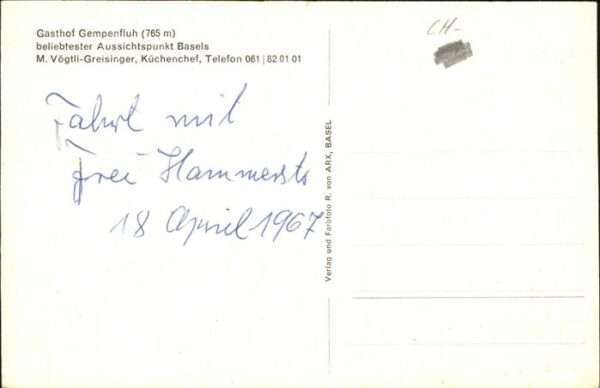 Gasthof Gempenfluh (765 m)
beliebtester Aussichtspunkt Basels
M. Vögtli-Greisinger, Küchenchef, Telefon 061 | 82 01 01
CH-
Fahrt mit
Frei Hammerstr
18 April 1967
Verlag und Farbfoto R. von ARX, BASEL